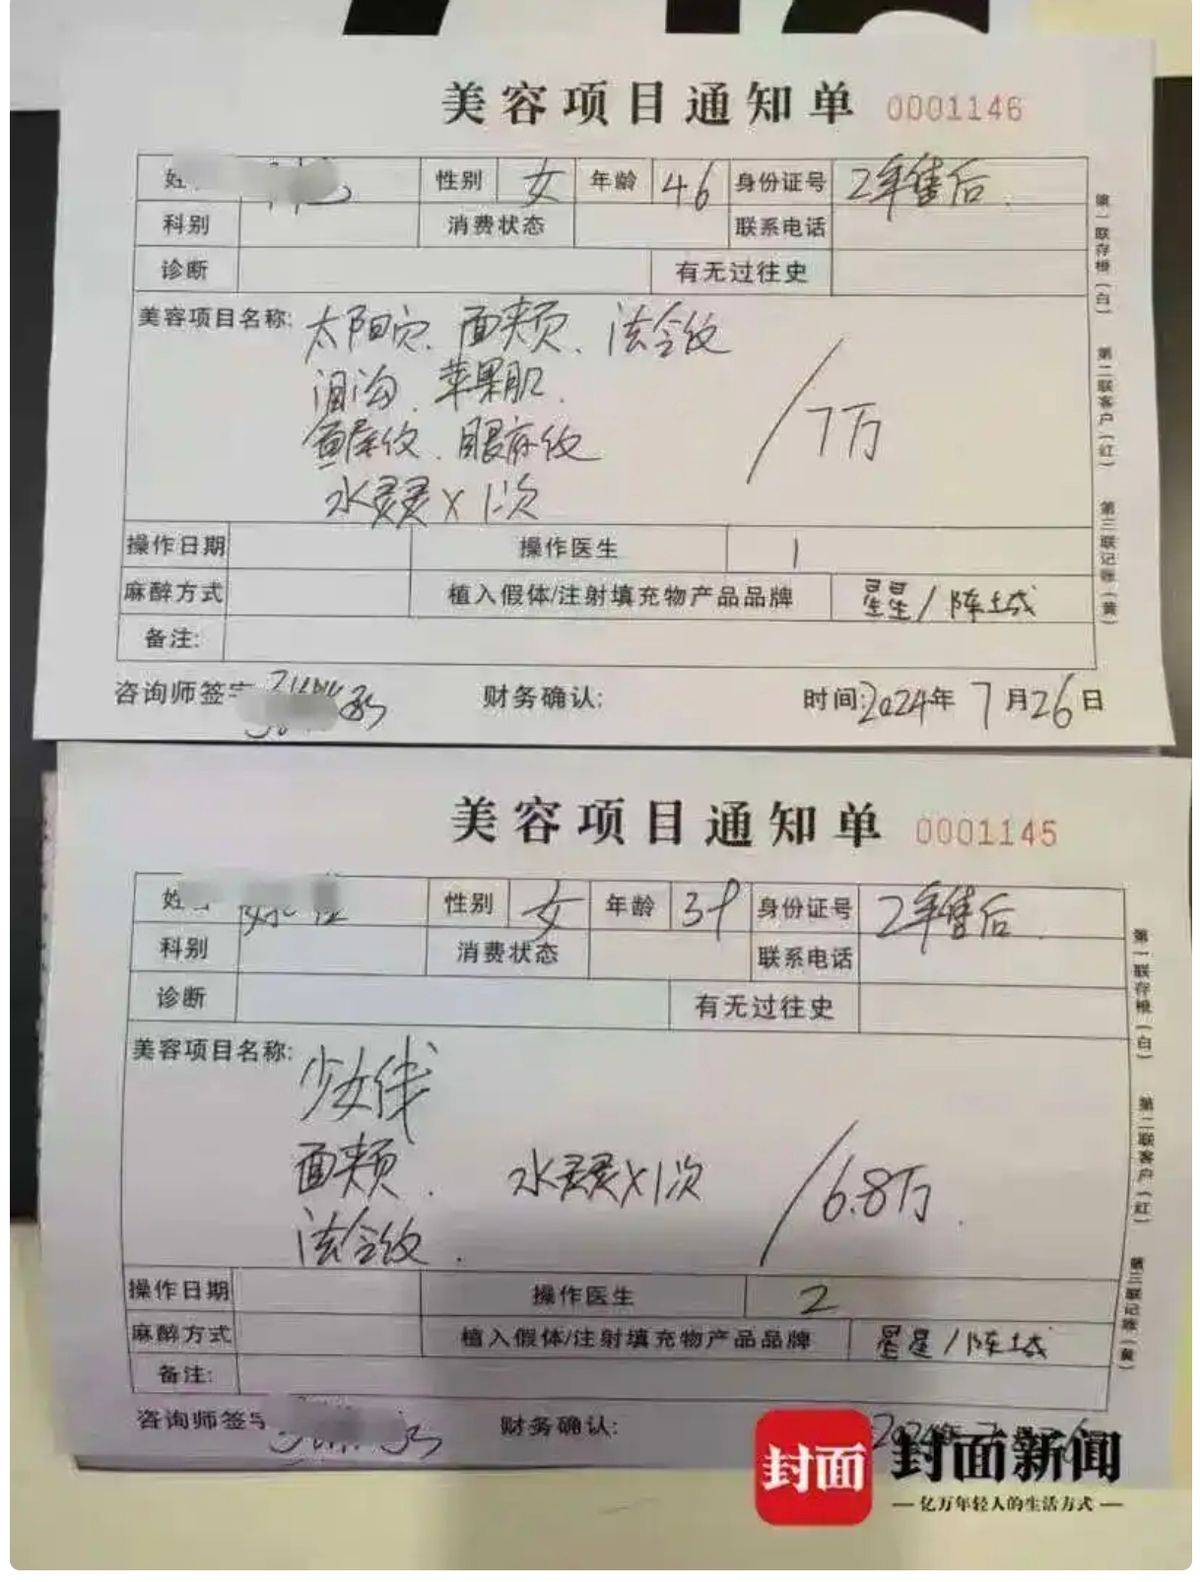 美容项目通知单 0001146
姓 性别 女 年龄 46 身份证号 2年售后
科别 消费状态 联系电话
诊断 有无过往史
美容项目名称: 太阳穴、面夹页、法令纹
泪沟、苹果肌
鱼尾纹、眼底纹 /7万
水灵灵×1次
操作日期 操作医生 1
麻醉方式 植入假体/注射填充物产品品牌 星星/陈城
备注:
咨询师签字 财务确认: 时间:2024年7月26日
第一联存根(白) 第二联客户(红) 第三联记账(黄)
美容项目通知单 0001145
姓 性别 女 年龄 身份证号 2年售后
科别 消费状态 联系电话
诊断 有无过往史
美容项目名称: 少女线
面夹页、 水灵灵×1次 /6.8万
法令纹
操作日期 操作医生 2
麻醉方式 植入假体/注射填充物产品品牌 星星/陈城
备注:
咨询师签字 财务确认: 2024年7月26
第一联存根(白) 第二联客户(红) 第三联记账(黄)
封面 封面新闻
—亿万年轻人的生活方式—